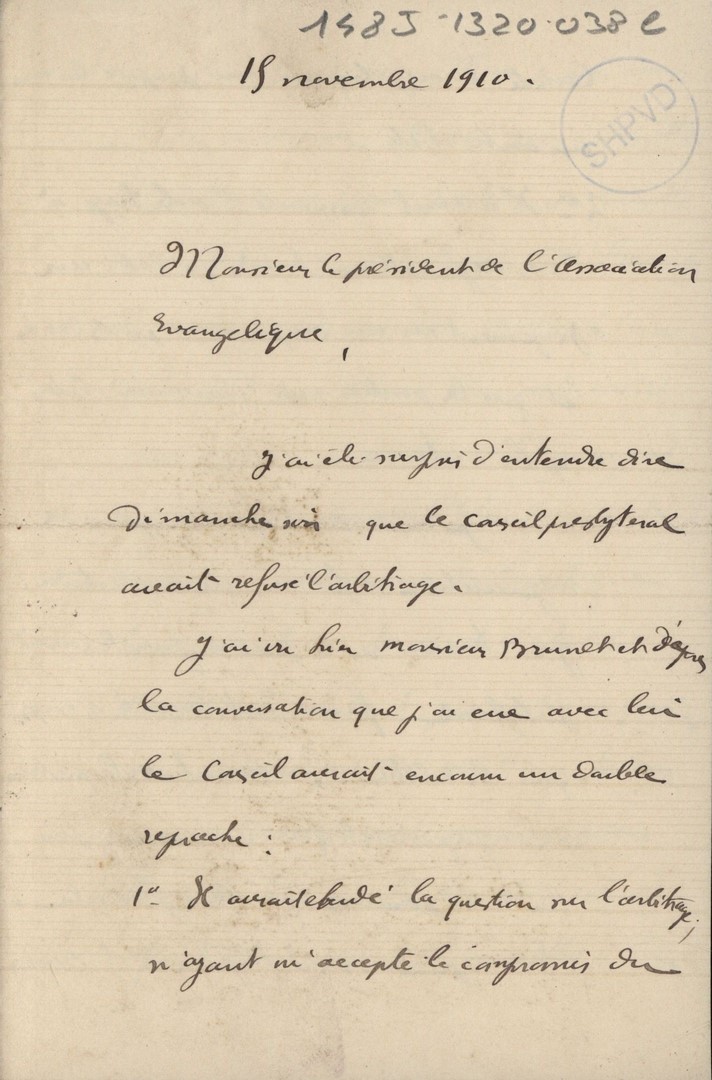 148J-1320-038 C
15 novembre 1910.
SHPVD
Monsieur le président de l'association
Evangélique,
J'ai été surpris d'entendre dire
Dimanche soir que le conseil presbyteral
avait refusé l'arbitrage.
J'ai vu hier monsieur Brunet et d'après
la conversation que j'ai eue avec lui
le Conseil aurait encouru un double
reproche :
1° Il aurait éludé la question sur l'arbitrage,
n'ayant ni accepté le compromis du